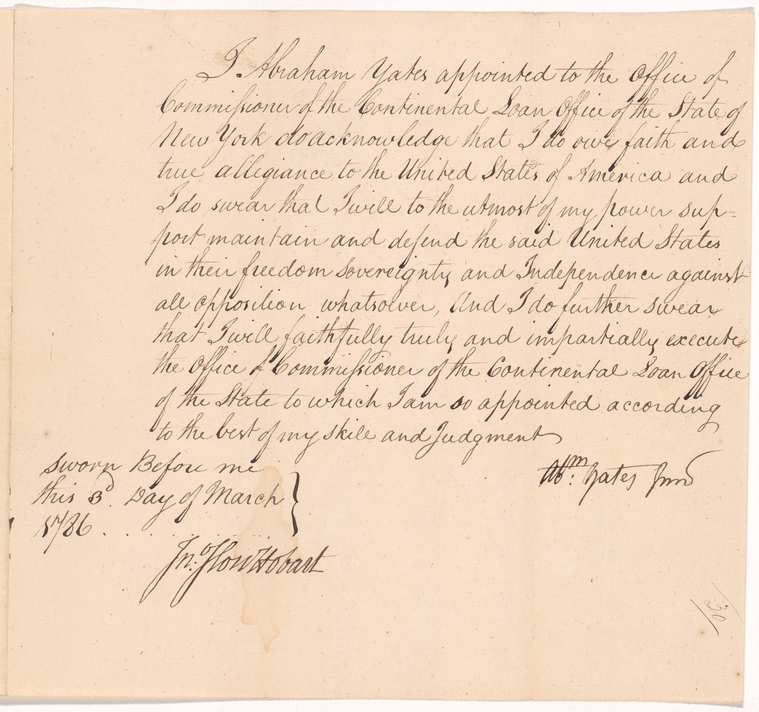 I Abraham Yates appointed to the Office of
Commissioner of the Continental Loan Office of the State of
New York do acknowledge that I do owe faith and
true allegiance to the United States of America and
I do swear that I will to the utmost of my power sup=
port maintain and defend the said United States
in their freedom Sovereignty and Independence against
all opposition whatsoever, And I do further swear
that I will faithfully truly and impartially execute
the Office of Commissioner of the Continental Loan Office
of the State to which I am so appointed according
to the best of my skill and Judgment
Abm: Yates Junr
Sworn Before me
this 3d Day of March
1786
Jno Slow Hobart
30